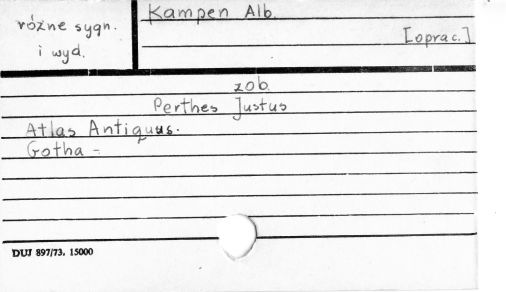 różne sygn.
i wyd.
Kampen Alb.
[oprac.]
zob.
Perthes Justus
Atlas Antiquus.
Gotha -
DUJ 897/73. 15000